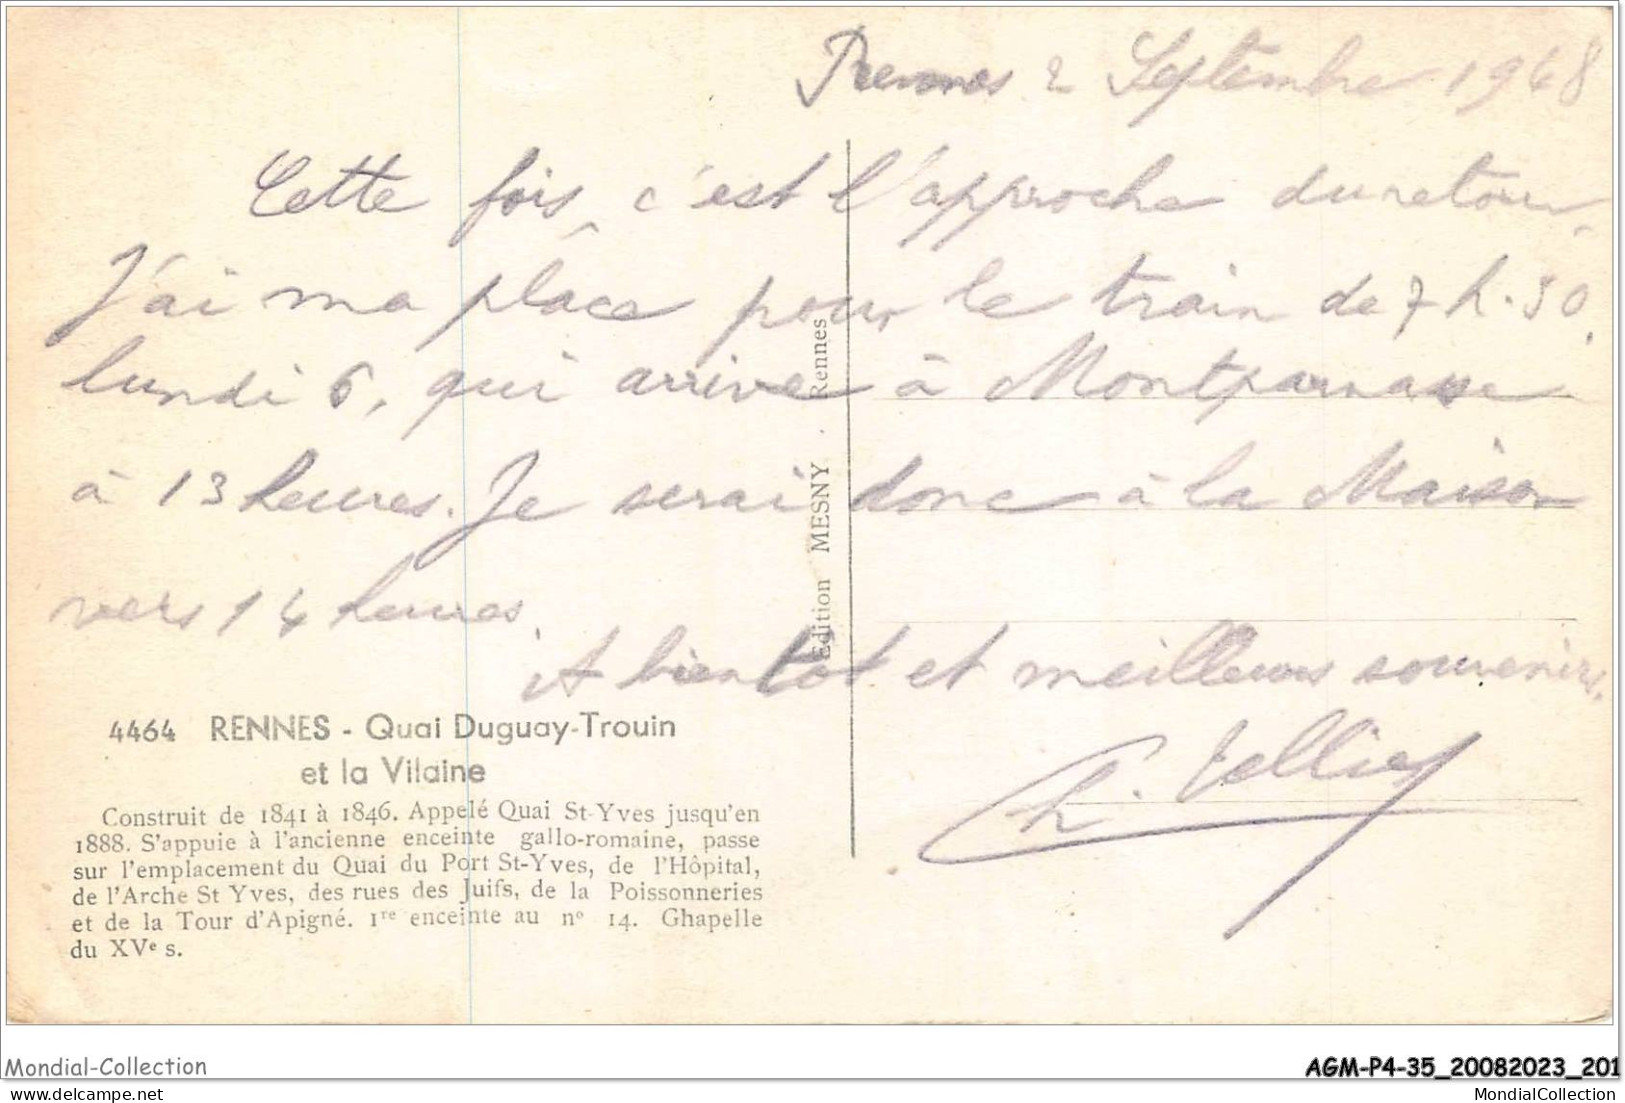 Rennes 2 Septembre 1948
Cette fois, c'est l'approche du retour.
J'ai ma place pour le train de 7 h. 50,
lundi 6, qui arrive à Montparnasse
à 13 heures. Je serai donc à la Maison
vers 14 heures.
A bientot et meilleurs souvenirs.
Ch. Tellier
Edition MESNY . Rennes
4464 RENNES - Quai Duguay-Trouin
et la Vilaine
Construit de 1841 à 1846. Appelé Quai St-Yves jusqu'en
1888. S'appuie à l'ancienne enceinte gallo-romaine, passe
sur l'emplacement du Quai du Port St-Yves, de l'Hôpital,
de l'Arche St Yves, des rues des Juifs, de la Poissonneries
et de la Tour d'Apigné. 1re enceinte au n° 14. Ghapelle
du XVe s.
Mondial-Collection
AGM-P4-35_20082023_201
MondialCollection.com